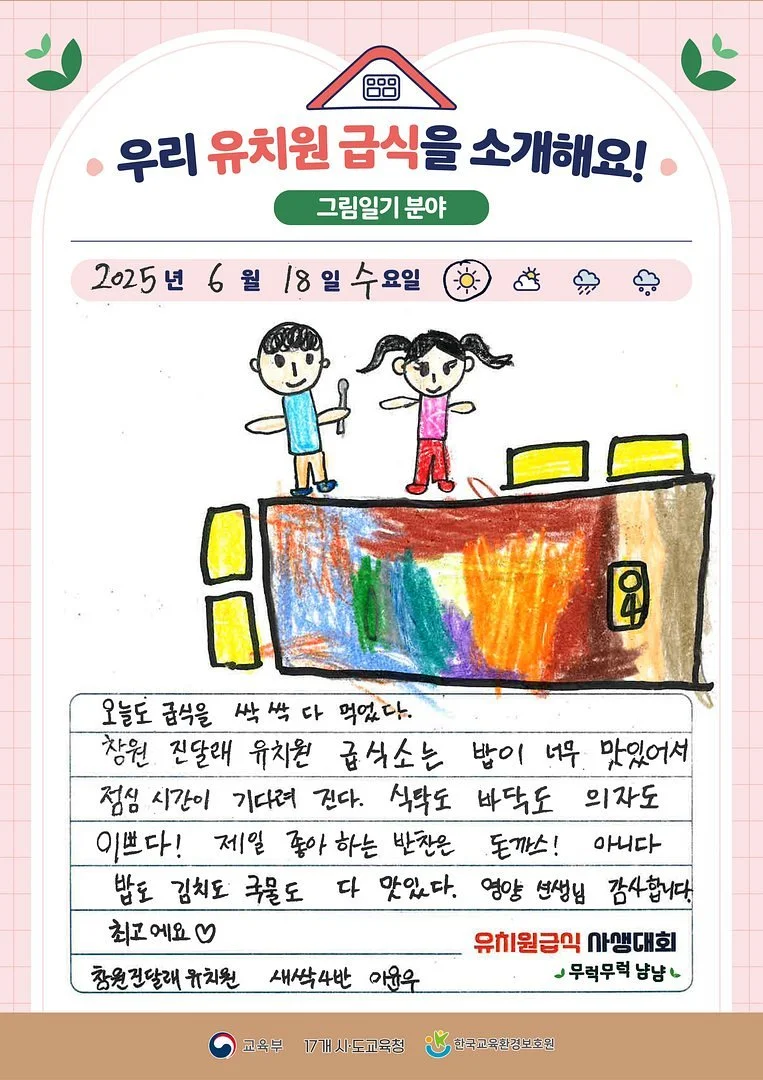 우리 유치원 급식을 소개해요!
그림일기 분야
2025년 6월 18일 수요일
94
오늘도 급식을 싹 싹 다 먹었다.
창원 진달래 유치원 급식소는 밥이 너무 맛있어서
점심 시간이 기다려 진다. 식탁도 바닥도 의자도
이쁘다! 제일 좋아 하는 반찬은 돈까스! 아니다
밥도 김치도 국물도 다 맛있다. 영양 선생님 감사합니다
최고에요♡
유치원급식 사생대회
무럭무럭 냠냠
창원진달래유치원 새싹4반 이윤우
교육부 17개 시·도교육청 한국교육환경보호원